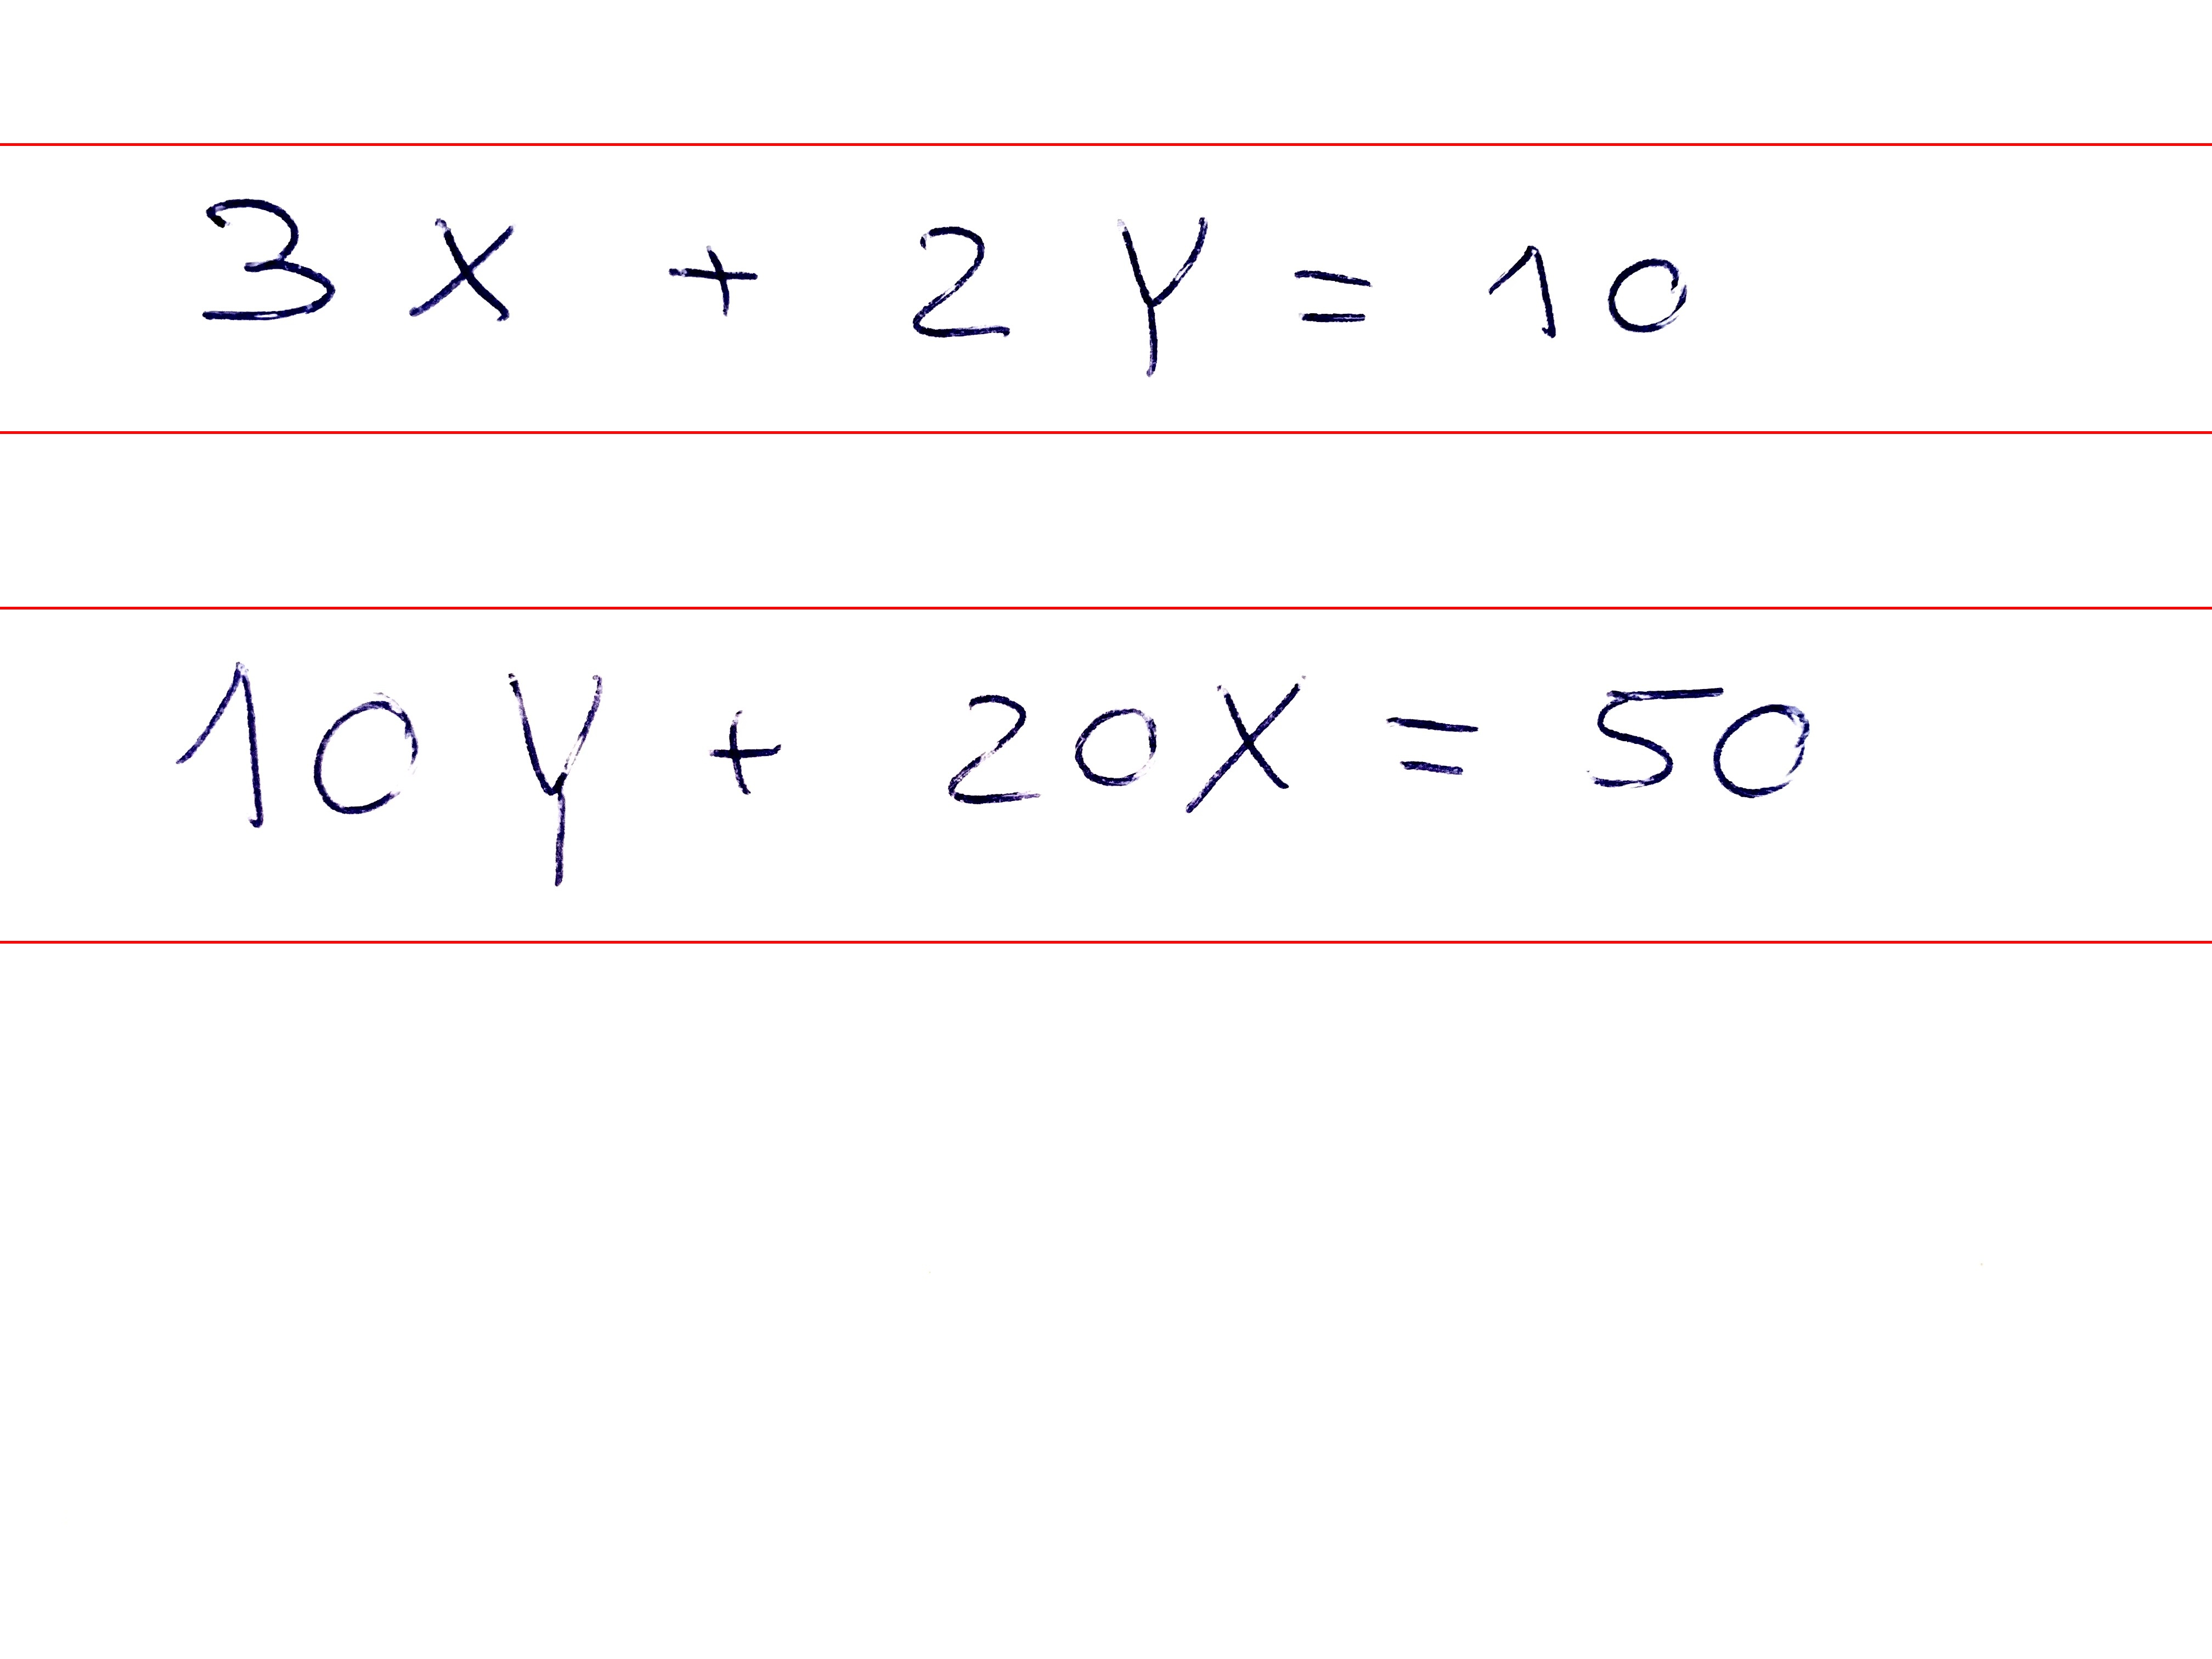 3x + 2y = 10
10y + 20x = 50